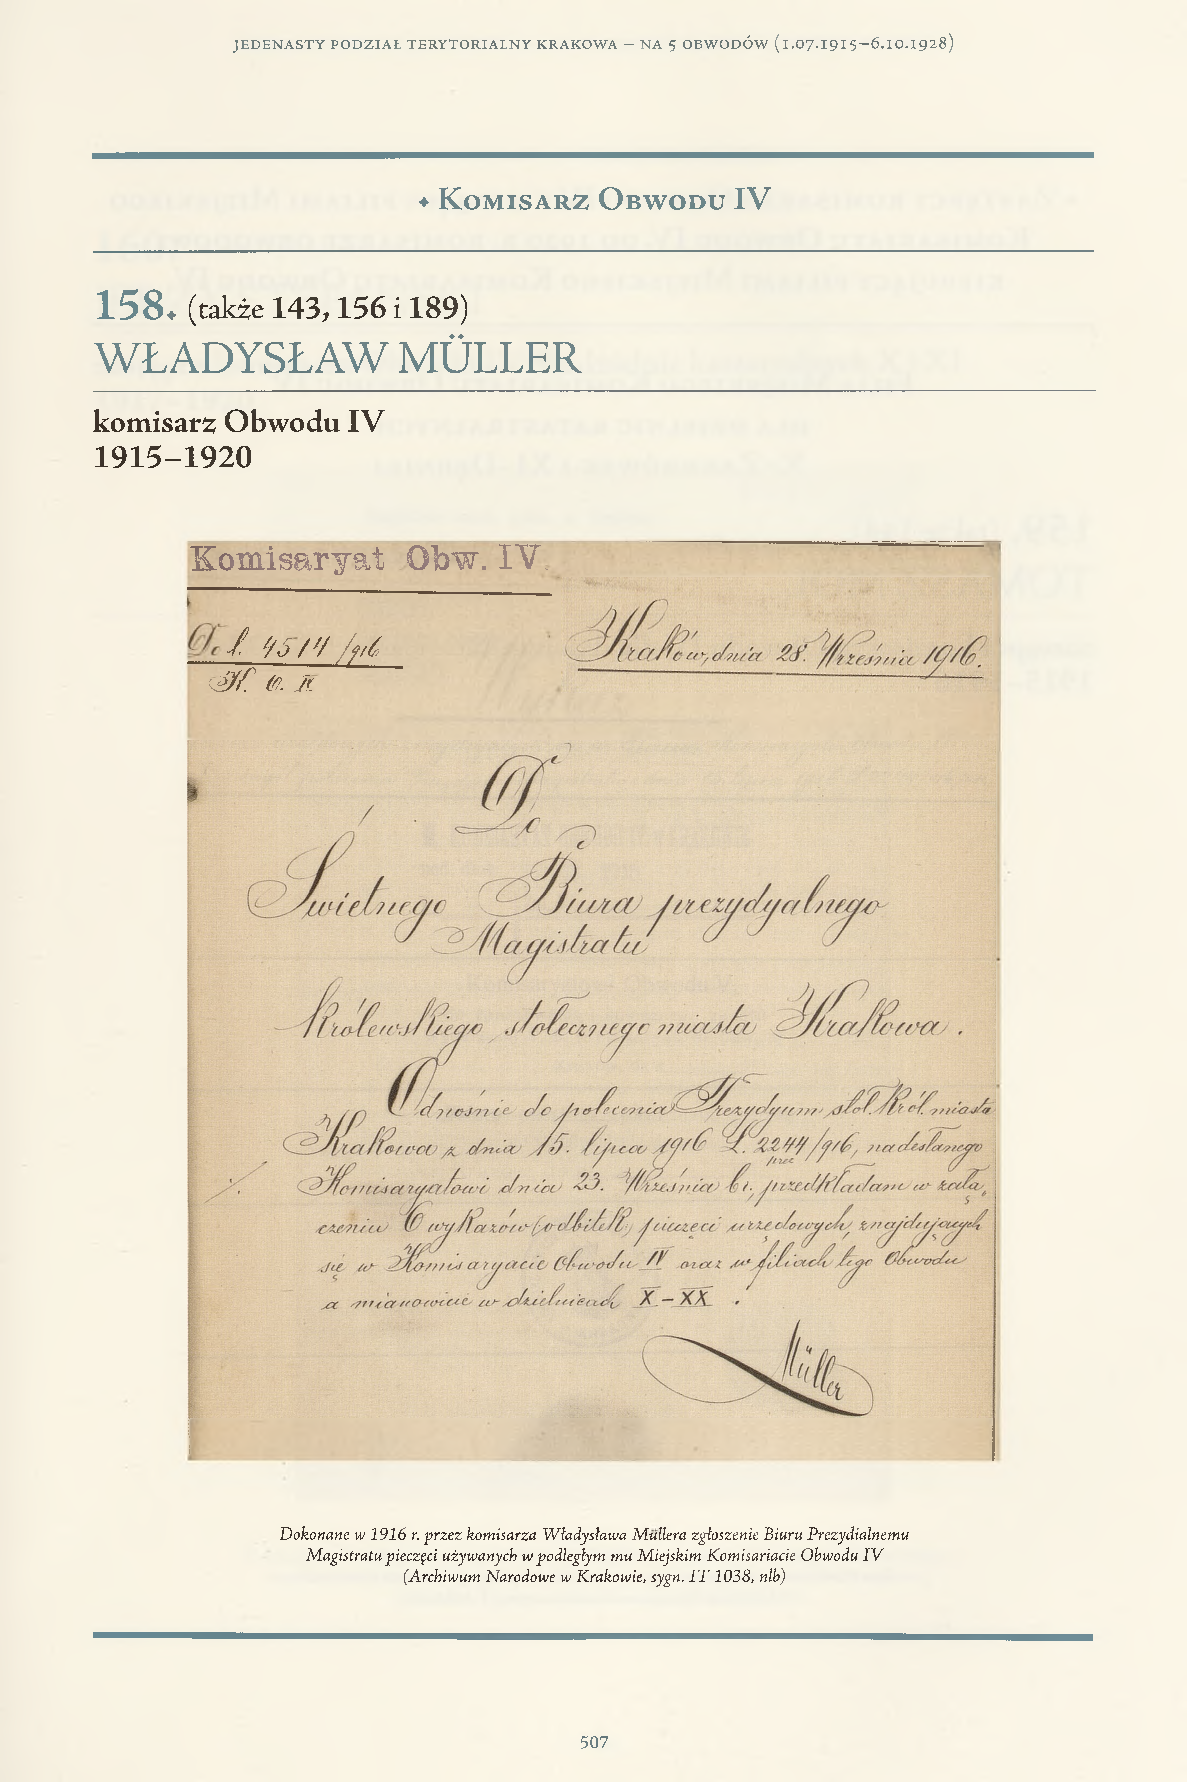 JEDENASTY PODZIAŁ TERYTORIALNY KRAKOWA – NA 5 OBWODÓW (1.07.1915–6.10.1928)
♦ Komisarz Obwodu IV
158. (także 143, 156 i 189)
WŁADYSŁAW MÜLLER
komisarz Obwodu IV
1915–1920
Komisaryat Obw. IV
Do l. 4514/916
K. O. IV
Kraków, dnia 28. Września 1916.
Do
Świetnego Biura prezydyalnego
Magistratu
królewskiego stołecznego miasta Krakowa.
Odnośnie do polecenia Prezydyum stoł. Król. miasta
Krakowa z dnia 15. lipca 1916 L. 2244/916, nadesłanego
prez
·/. Komisaryatowi dnia 23. Września br., przedkładam w załą„
czeniu 6 wykazów (odbitek) pieczęci urzędowych, znajdujących
się w Komisaryacie Obwodu IV oraz w filiach tego Obwodu
a mianowicie w dzielnicach X–XX.
Müller
Dokonane w 1916 r. przez komisarza Władysława Müllera zgłoszenie Biuru Prezydialnemu
Magistratu pieczęci używanych w podległym mu Miejskim Komisariacie Obwodu IV
(Archiwum Narodowe w Krakowie, sygn. IT 1038, nlb)
507